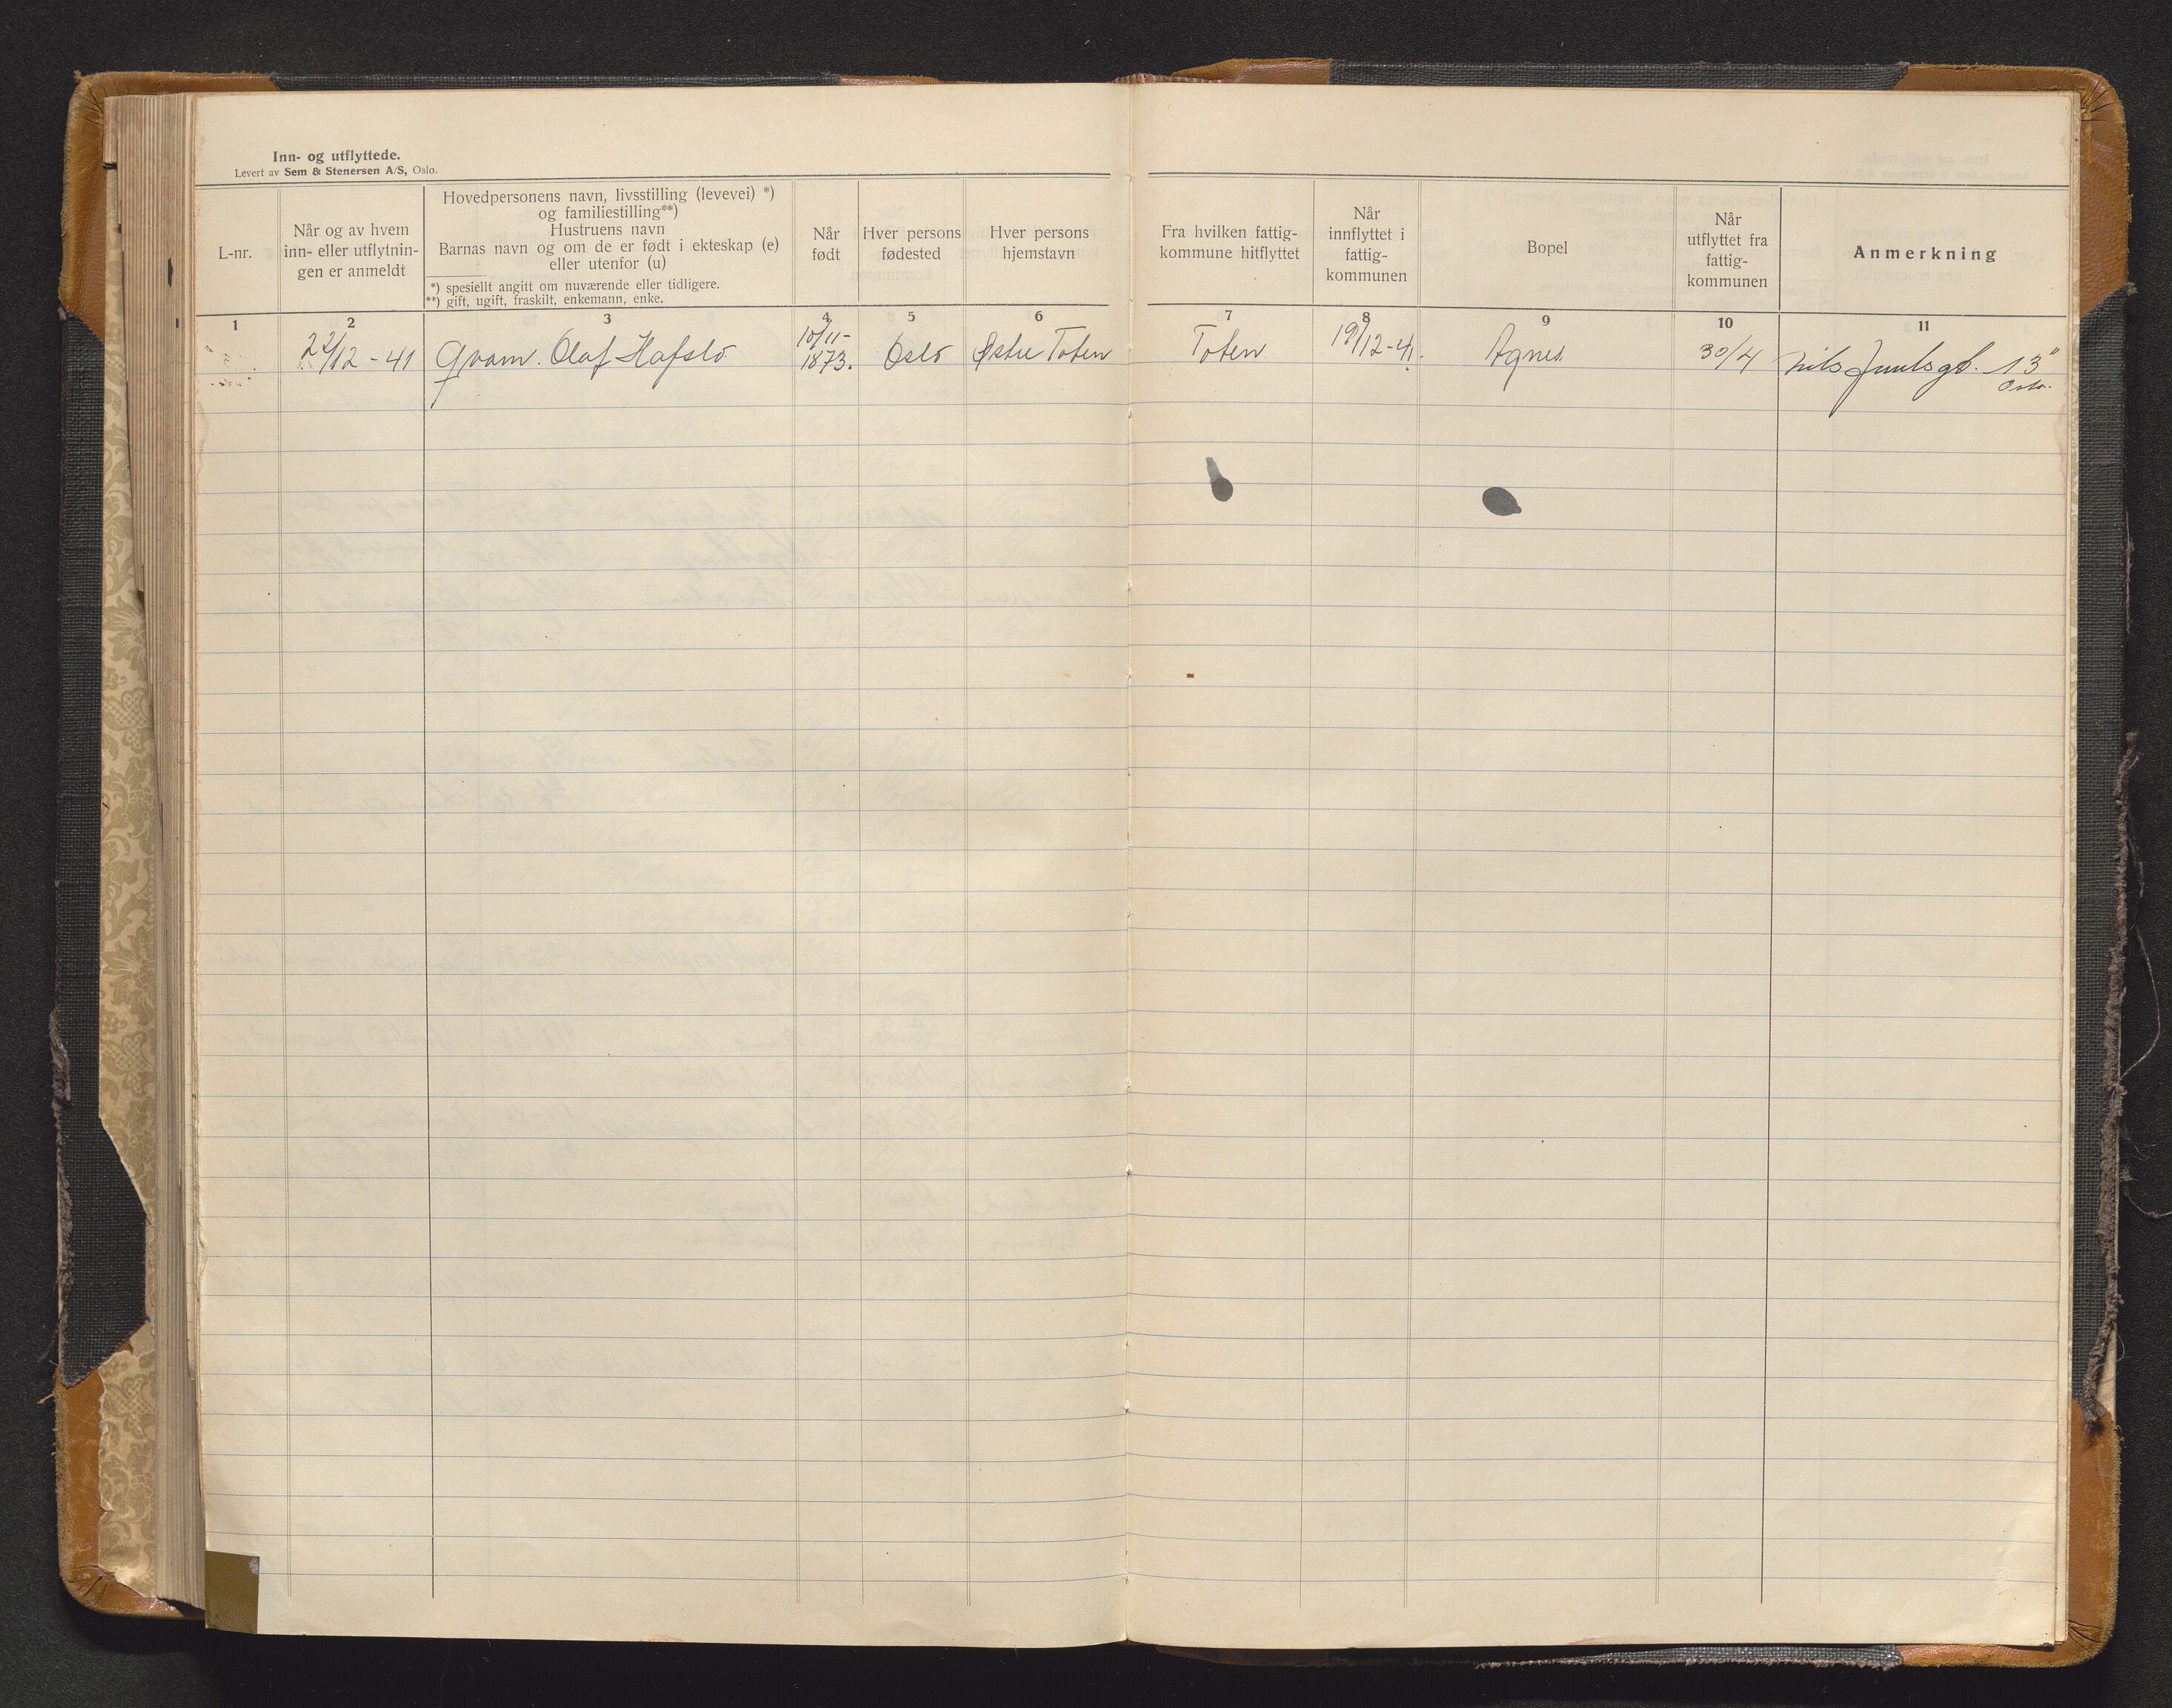 Inn- og utflyttede.
Levert av Sem & Stenersen A/S, Oslo.
L-nr.
Når og av hvem
inn- eller utflytnin-
gen er anmeldt
Hovedpersonens navn, livsstilling (levevei) *)
og familiestilling**)
Hustruens navn
Barnas navn og om de er født i ekteskap (e)
eller utenfor (u)
*) spesiellt angitt om nuværende eller tidligere.
**) gift, ugift, fraskilt, enkemann, enke.
Når
født
Hver persons
fødested
Hver persons
hjemstavn
Fra hvilken fattig-
kommune hitflyttet
Når
innflyttet i
fattig-
kommunen
Bopel
Når
utflyttet fra
fattig-
kommunen
Anmerkning
1 2 3 4 5 6 7 8 9 10 11
22/12-41 Qvam. Olaf Hafslo 10/11-
1873. Oslo Østre Toten Toten 19/12-41. Agnes 30/4 Nils Juulsgt. 13"
Oslo.